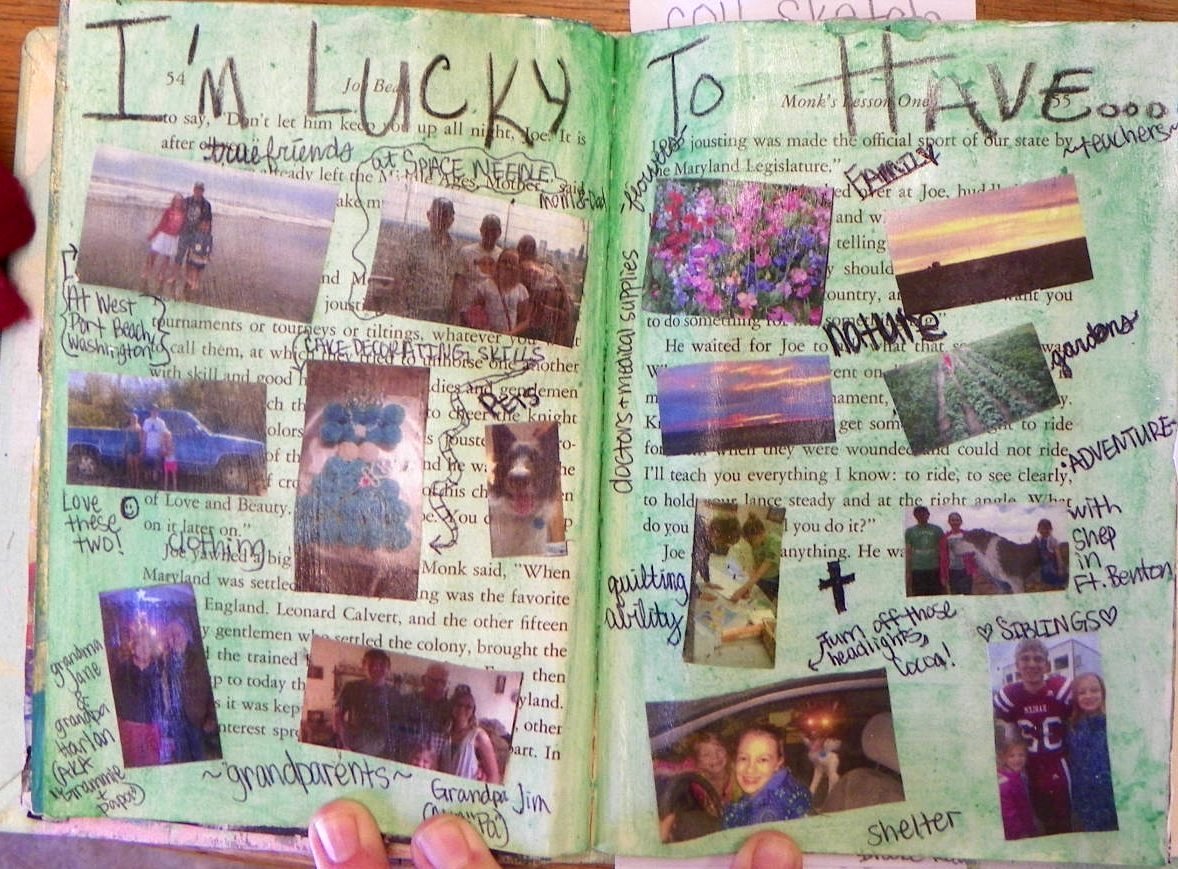 coll sketch
I'm LUCKY
54
to say, "Don't let him keep you up all night, Joe. It is
after
true friends
at SPACE NEEDLE
already left the
Mother
said
mom & Dad
ake m
nd M
joust
At West
Port Beach,
Washington
tournaments or tourneys or tiltings, whatever you
call them, at which
to unhorse one another
CAKE DECORATING SKILLS
with skill and good h
dies and gentlemen
ch th
to cheer the knight
PETS
olors
s jouste
of th
nd he wa
of cro
of his ch
Love
these
two!
of Love and Beauty.
on it later on."
clothing
Joe yawned a big
Monk said, "When
Maryland was settled
ng was the favorite
England. Leonard Calvert, and the other fifteen
y gentlemen who settled the colony, brought the
d the trained
then
p to today th
yland.
s it was kep
other
interest spr
part. In
grandma
Jane
&
grandpa
Harlan
(AKA
"Grammie
+
Papa")
~grandparents~
Grandpa Jim
TO HAVE...
Monk's Lesson One
55
jousting was made the official sport of our state by
the Maryland Legislature."
~teachers~
flowers
FAMILY
ed over at Joe,
and w
telling
y should
ountry, a
want you
to do something for
doctors + medical supplies
nature
He waited for Joe to
what that
gardens
ent on
nament,
get som
to ride
for
when they were wounded and could not ride
ADVENTURE
I'll teach you everything I know: to ride, to see clearly,
to hold your lance steady and at the right angle. What
do you
l you do it?"
Joe
anything. He wa
with
Shep
in
Ft. Benton
quilting
ability
Turn off those
headlights,
Cocoa!
♡ SIBLINGS ♡
60
shelter